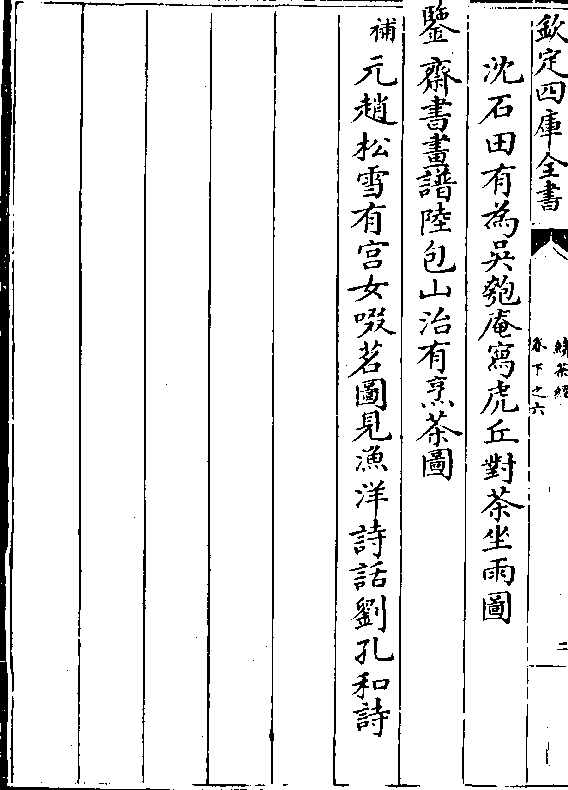 欽定四庫全書
續茶經
卷下之六
二
沈石田有為吳匏庵寫虎丘對茶坐雨圖
鑒齋書畫譜陸包山治有烹茶圖
補元趙松雪有宫女啜茗圖見漁洋詩話劉孔和詩